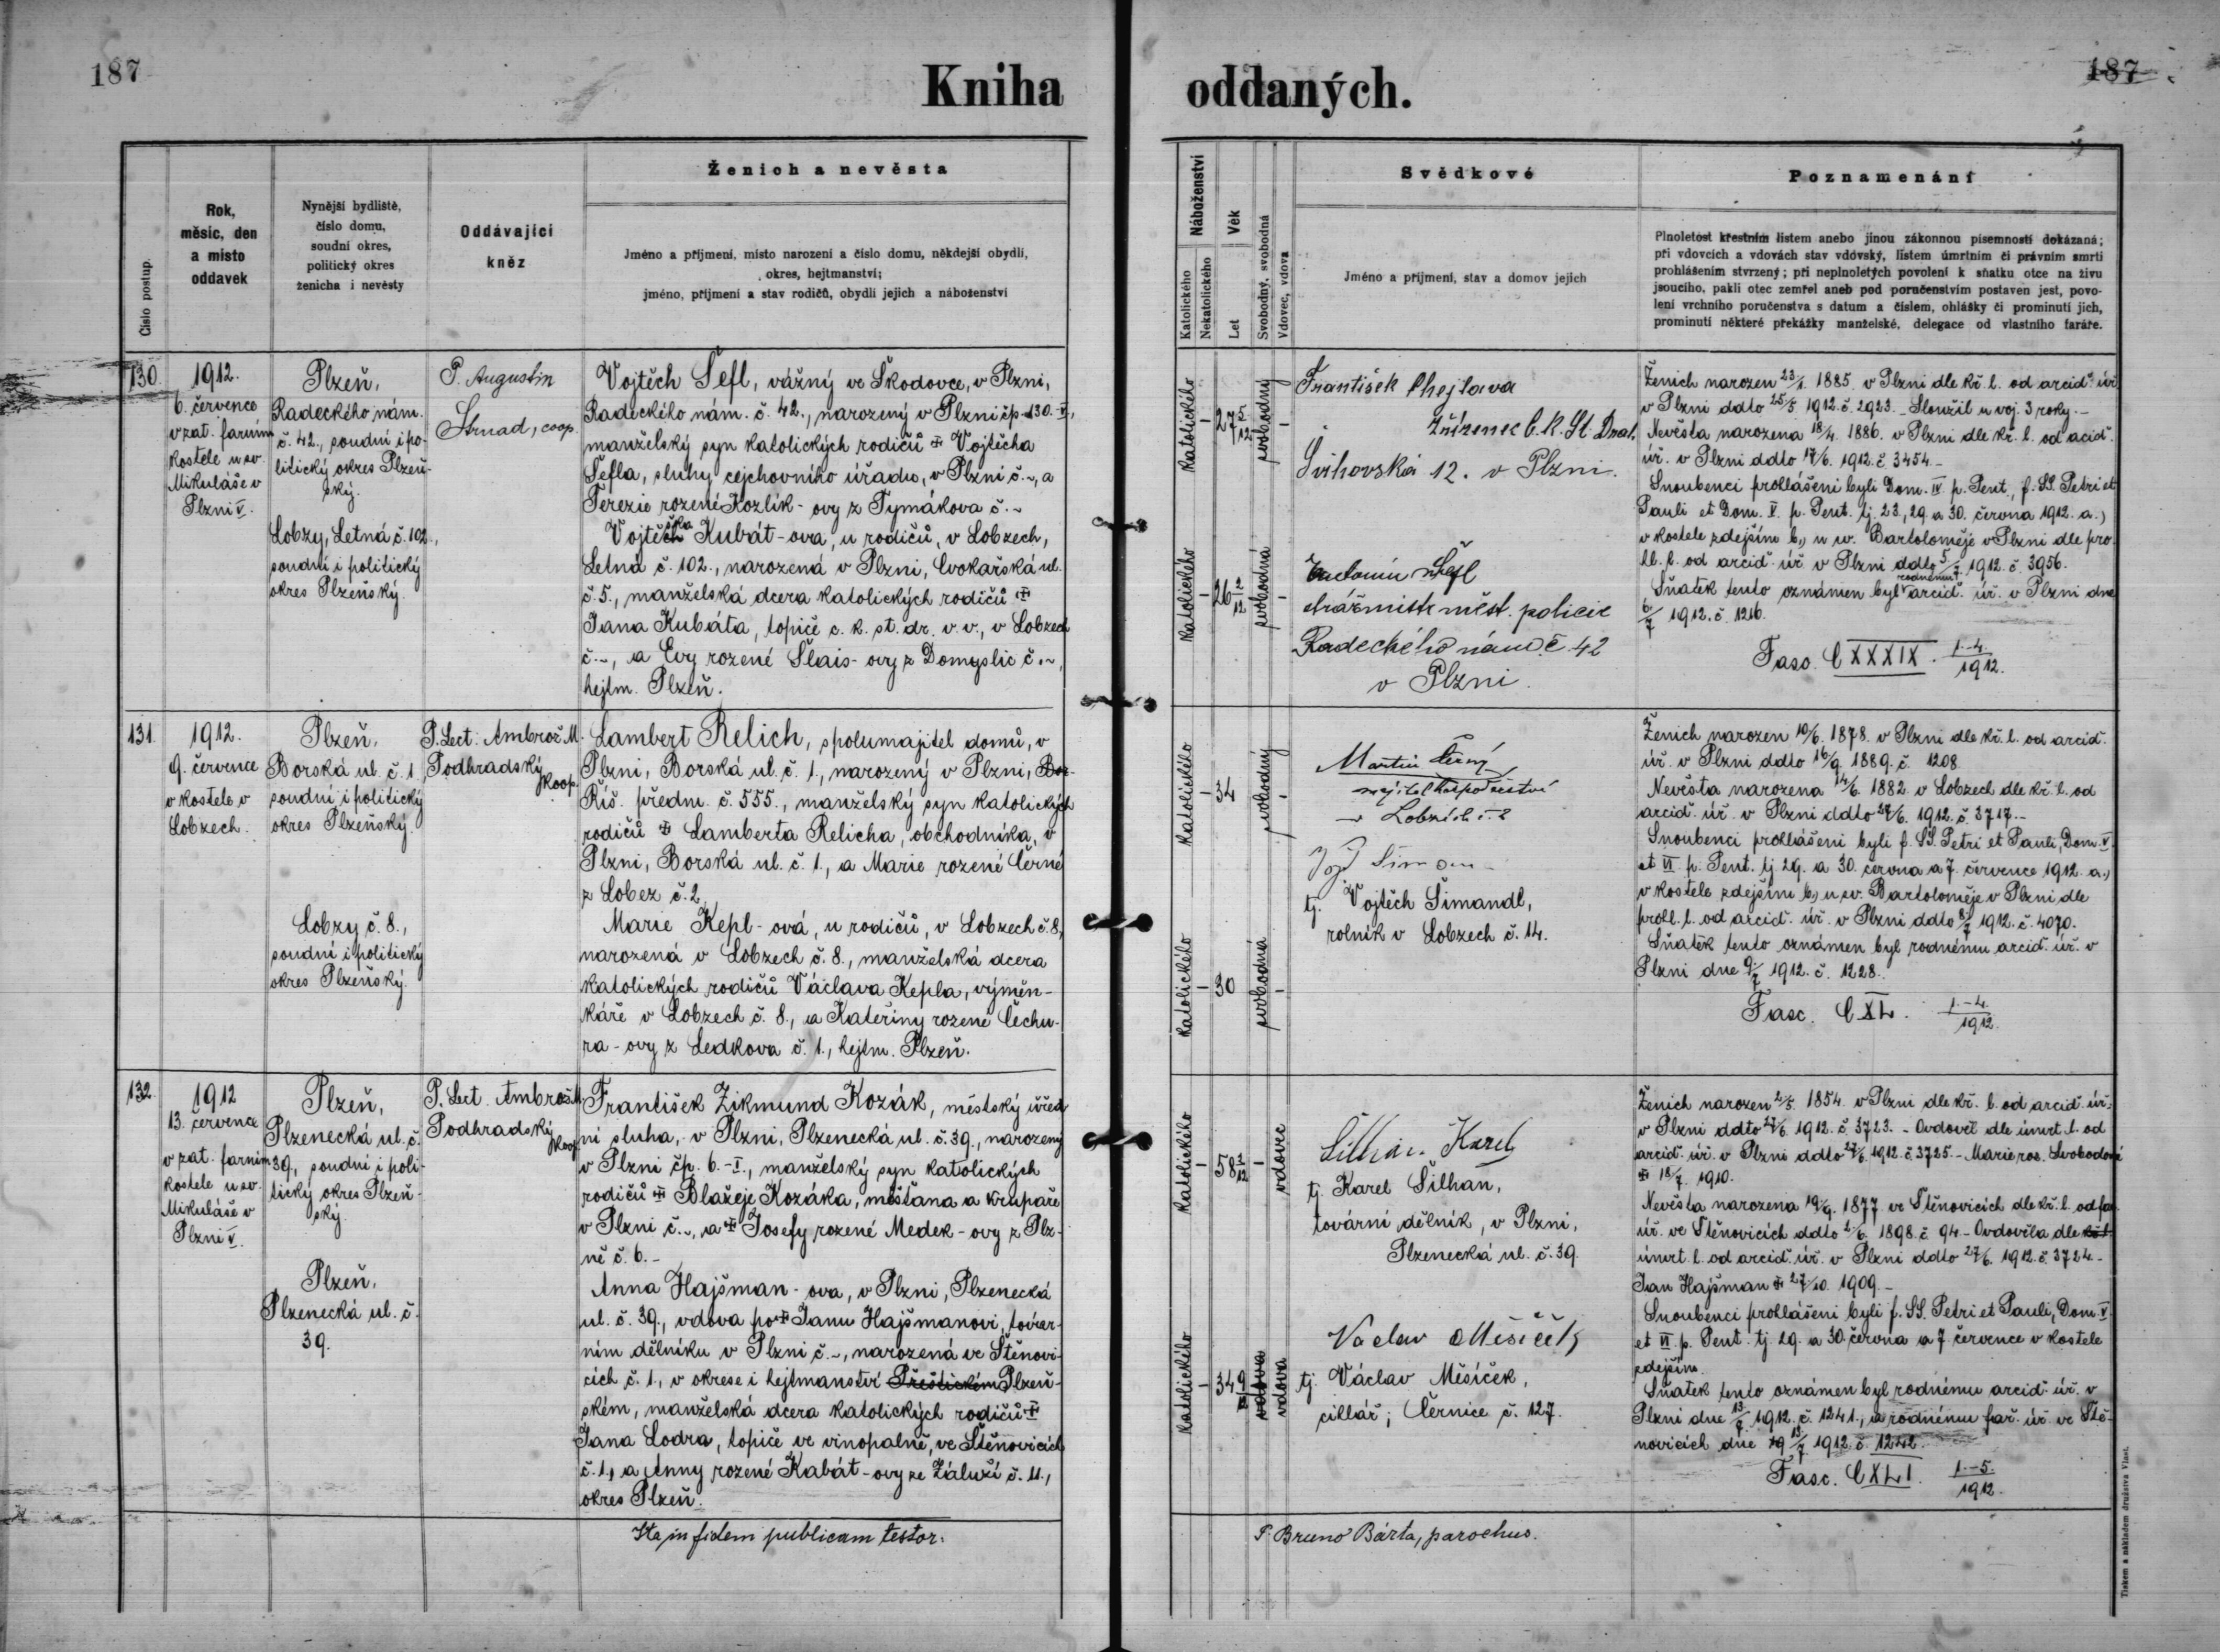 187
Kniha
Číslo postup.
Rok,
měsíc, den
a místo
oddavek
Nynější bydliště,
číslo domu,
soudní okres,
politický okres
ženicha i nevěsty
Oddávající
kněz
Ženich a nevěsta
Jméno a příjmení, místo narození a číslo domu, někdejší obydlí,
okres, hejtmanství;
jméno, příjmení a stav rodičů, obydlí jejich a náboženství
130.
1912.
6. července
v zat. farním
kostele u sv.
Mikuláše v
Plzni V.
Plzeň,
Radeckého nám.
č. 42., soudní i po-
litický okres Plzeň-
ský.
Lobzy, Letná č. 102.,
soudní i politický
okres Plzeňský.
P. Augustin
Strnad, coop.
Vojtěch Šefl, vážný ve Škodovce, v Plzni,
Radeckého nám. č. 42., narozený v Plzni čp. 130.-V.,
manželský syn katolických rodičů ✠ Vojtěcha
Šefla, sluhy cejchovního úřadu, v Plzni č.~, a
Terezie rozené Kozlík-ovy z Tymákova č.~
Vojtěška Kubát-ova, u rodičů, v Lobzech,
Letná č. 102., narozená v Plzni, Cvokařská ul.
č. 5., manželská dcera katolických rodičů ✠
Jana Kubáta, topiče c. k. st. dr. v. v., v Lobzech
č.~, a Evy rozené Šlais-ovy z Domyslic č.~,
hejtm. Plzeň.
131.
1912.
9. července
v kostele v
Lobzech.
Plzeň,
Borská ul. č. 1.
soudní i politický
okres Plzeňský.
Lobzy č. 8.,
soudní i politický
okres Plzeňský.
P. Lect. Ambrož M.
Podhradský
koop.
Lambert Relich, spolumajitel domů, v
Plzni, Borská ul. č. 1., narozený v Plzni,
Říš. předm. č. 555., manželský syn katolických
rodičů ✠ Lamberta Relicha, obchodníka, v
Plzni, Borská ul. č. 1., a Marie rozené Černé
z Lobez č. 2.
Marie Kepl-ová, u rodičů, v Lobzech č. 8,
narozená v Lobzech č. 8., manželská dcera
katolických rodičů Václava Kepla, výměn-
káře v Lobzech č. 8., a Kateřiny rozené Čechu-
ra-ovy z Ledkova č. 1., hejtm. Plzeň.
132.
1912
13. července
v zat. farním
kostele u sv.
Mikuláše v
Plzni V.
Plzeň,
Plzenecká ul. č.
39., soudní i poli-
tický okres Plzeň-
ský.
Plzeň,
Plzenecká ul. č.
39.
P. Lect. Ambrož M.
Podhradský
koop.
František Zikmund Kozák, městský úřed-
ní sluha, v Plzni, Plzenecká ul. č. 39., narozený
v Plzni čp. 6.-I., manželský syn katolických
rodičů ✠ Blažeje Kozáka, měšťana a krupaře
v Plzni č.~, a ✠ Josefy rozené Medek-ovy z Plz-
ně č. 6.-
Anna Hajšman-ova, v Plzni, Plzenecká
ul. č. 39., vdova po ✠ Janu Hajšmanovi, továr-
ním dělníku v Plzni č.~, narozená ve Štěnovi-
cích č. 1., v okrese i hejtmanství Přeštickém Plzeň-
ském, manželská dcera katolických rodičů ✠
Jana Lodra, topiče ve vinopalně, ve Štěnovicích
č. 1., a Anny rozené Kabát-ovy ze Záluží č. 11.,
okres Plzeň.
Ita in fidem publicam testor:
oddaných.
187
Náboženství
Katolického
Nekatolického
Věk
Let
Svobodný, svobodná
Vdovec, vdova
Svědkové
Jméno a příjmení, stav a domov jejich
Poznamenání
Plnoletost křestním listem anebo jinou zákonnou písemností dokázaná;
při vdovcích a vdovách stav vdovský, listem úmrtním či právním smrti
prohlášením stvrzený; při neplnoletých povolení k sňatku otce na živu
jsoucího, pakli otec zemřel aneb pod poručenstvím postaven jest, povo-
lení vrchního poručenstva s datum a číslem, ohlášky či prominutí jich,
prominutí některé překážky manželské, delegace od vlastního faráře.
Katolického
-
27 5/12
svobodný
-
Katolického
-
26 2/12
svobodná
-
František Chejlava
Zřízenec C. K. St. Drah,
Švihovská 12. v Plzni.
Antonín Šefl
strážmistr měst. policie
Radeckého nám. č 42
v Plzni.
Ženich narozen 23/1. 1885. v Plzni dle kř. l. od arcid. úř.
v Plzni ddto 25/5. 1912. č. 2923. - Sloužil u voj. 3 roky. -
Nevěsta narozena 18/4. 1886. v Plzni dle kř. l. od acid.
úř. v Plzni ddto 17/6. 1912. č. 3454.-
Snoubenci prohlášeni byli Dom. IV. p. Pent., f. SS. Petri et
Pauli et Dom. V. p. Pent. tj. 23., 29. a 30. června 1912. a.)
v kostele zdejším b.) u sv. Bartoloměje v Plzni dle pro-
hl. l. od arcid. úř. v Plzni ddto 5/7 1912. č. 3956.
Sňatek tento oznámen byl rodnému arcid. úř. v Plzni dne
6/7 1912. č. 1216.
Fasc. CXXXIX. 1.-4./1912.
Katolického
-
34
svobodný
-
Katolického
-
30
svobodná
-
Martin Černý
majitel hospodářství
v Lobzích č. 2
tj. Vojtěch Šimandl,
rolník v Lobzech č. 14.
Ženich narozen 10/6. 1878. v Plzni dle kř. l. od arcid.
úř. v Plzni ddto 16/9. 1889. č. 1208.
Nevěsta narozena 14/6. 1882. v Lobzech dle kř. l. od
arcid. úř. v Plzni ddto 27/6. 1912. č. 3717.-
Snoubenci prohlášeni byli f. SS. Petri et Pauli, Dom. V.
et VI. p. Pent. tj. 29. a 30. června a 7. července 1912. a.)
v kostele zdejším b.) u sv. Bartoloměje v Plzni dle
prohl. l. od arcid. úř. v Plzni ddto 8/7 1912. č. 4070.
Sňatek tento oznámen byl rodnému arcid. úř. v
Plzni dne 9/7 1912. č. 1228.
Fasc. CXL. 1.-4./1912.
Katolického
-
58 2/12
-
vdovec
Katolického
-
34 9/12
vdova
vdova
Šilhan Karel
tj. Karel Šilhan,
tovární dělník, v Plzni,
Plzenecká ul. č. 39.
Vaclav Měsíček
tj. Václav Měsíček,
cihlář, Černice č. 127.
Ženich narozen 2/5. 1854. v Plzni dle kř. l. od arcid. úř.
v Plzni ddto 27/6. 1912. č. 3723. - Ovdověl dle úmrt. l. od
arcid. úř. v Plzni ddto 27/6. 1912. č. 3725.- Marie roz. Svobodové
✠ 18/7. 1910.
Nevěsta narozena 19/9. 1877. ve Štěnovicích dle kř. l. od far.
úř. ve Štěnovicích ddto 2/6. 1898. č. 94.- Ovdověla dle
úmrt. l. od arcid. úř. v Plzni ddto 27/6. 1912. č. 3724.-
Jan Hajšman ✠ 27/10. 1909.-
Snoubenci prohlášeni byli f. SS. Petri et Pauli, Dom. V.
et VI. p. Pent. tj. 29. a 30. června a 7. července v kostele
zdejším.
Sňatek tento oznámen byl rodnému arcid. úř. v
Plzni dne 13/7 1912. č. 1241., a rodnému far. úř. ve Ště-
novicích dne 13/7 1912. č. 1242.
Fasc. CXLI. 1.-5./1912.
P. Bruno Bárta, parochus.
Tiskem a nákladem družstva Vlast.